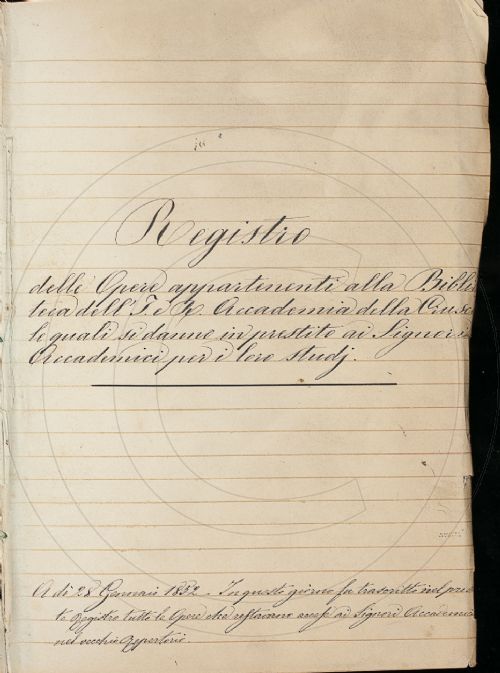 Registro
delle Opere appartenenti alla Biblio
teca dell'I. e R. Accademia della Crusca
le quali si danno in prestito ai Signori
Accademici per i loro studj.
A dì 28 Gennaio 1852. In questo giorno fu trascritto nel presen
te Registro tutte le Opere che restavano accese ai Signori Accademici
nel vecchio Repertorio.